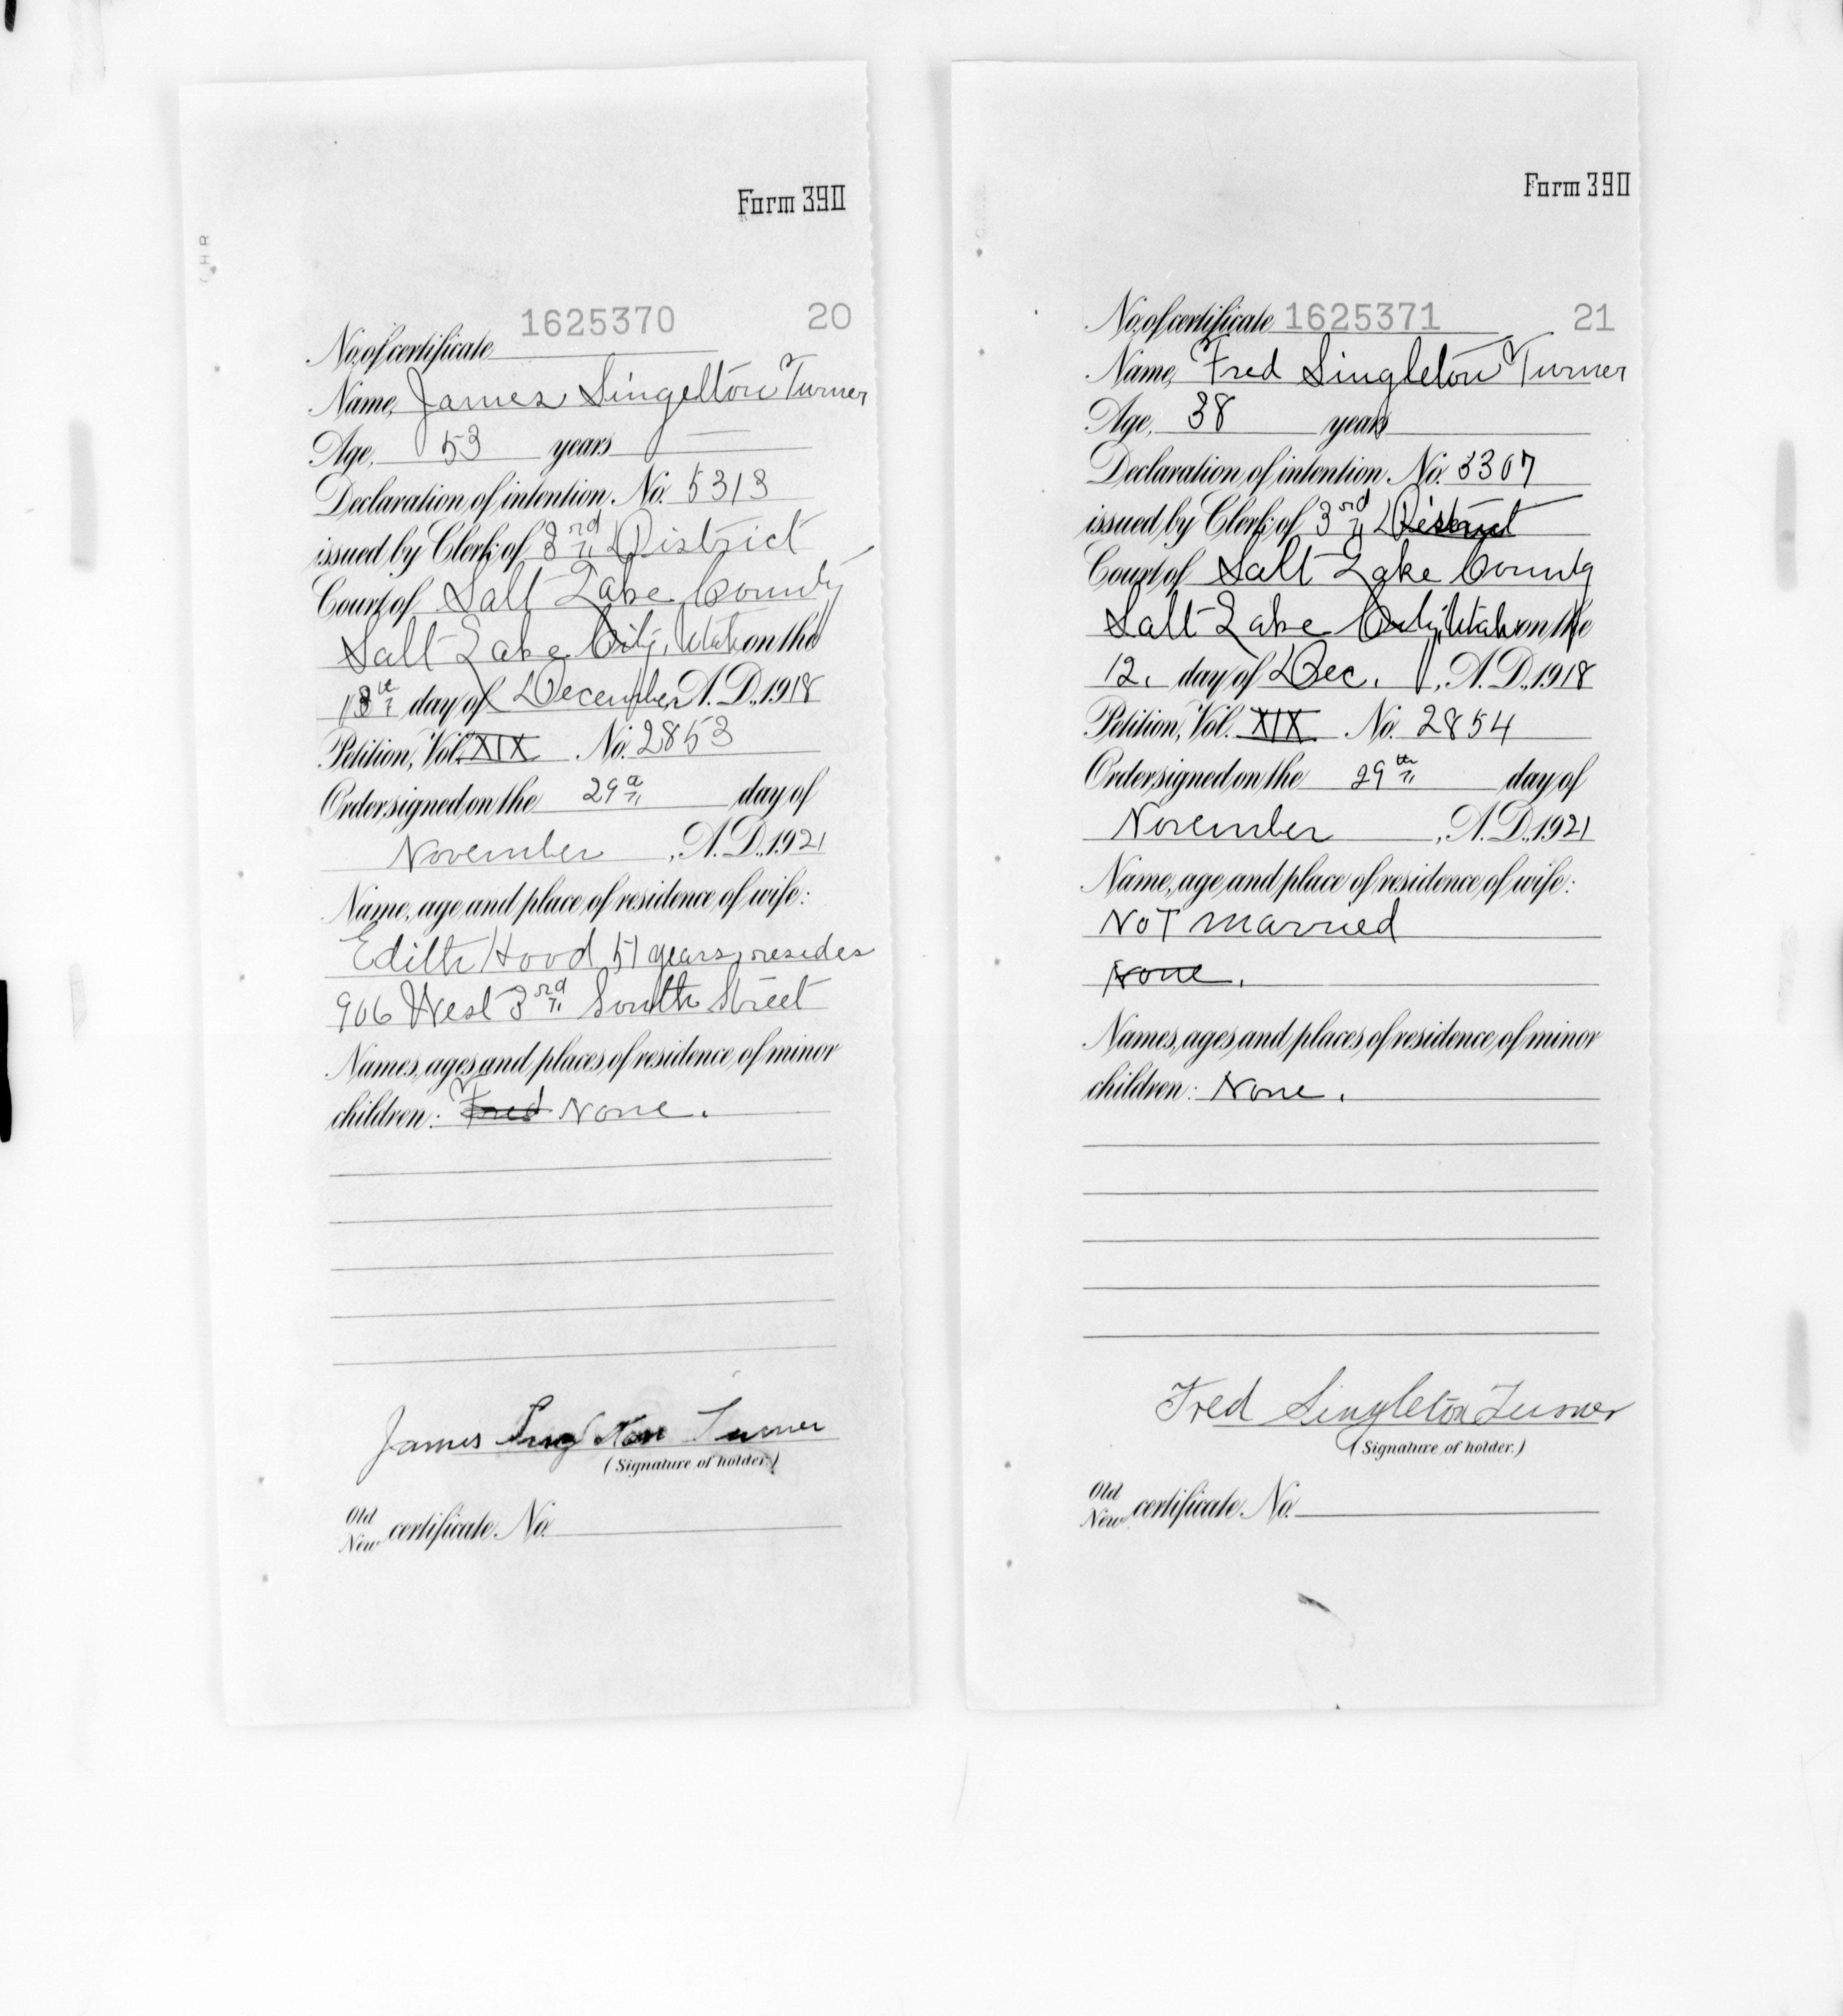 Form 390
1625370 20
No. of certificate
Name, James Singelton Turner
Age, 53 years
Declaration of intention, No. 5313
issued by Clerk of 3rd District
Court of Salt Lake County
Salt Lake City, Utah on the
13th day of December, A. D., 1918
Petition, Vol. XIX No. 2853
Order signed on the 29th day of
November, A. D., 1921
Name, age and place of residence of wife:
Edith Hood 51 years, resides
906 West 3rd South Street
Names, ages and places of residence of minor
children: Fred None.
James Singleton Turner
(Signature of holder.)
Old
New certificate No.
Form 390
No. of certificate 1625371 21
Name, Fred Singleton Turner
Age, 38 years
Declaration of intention, No. 5307
issued by Clerk of 3rd District
Court of Salt Lake County
Salt Lake City, Utah on the
12. day of Dec., A. D., 1918
Petition, Vol. XIX No. 2854
Order signed on the 29th day of
November, A. D., 1921
Name, age and place of residence of wife:
Not Married
None.
Names, ages and places of residence of minor
children: None.
Fred Singleton Turner
(Signature of holder.)
Old
New certificate No.